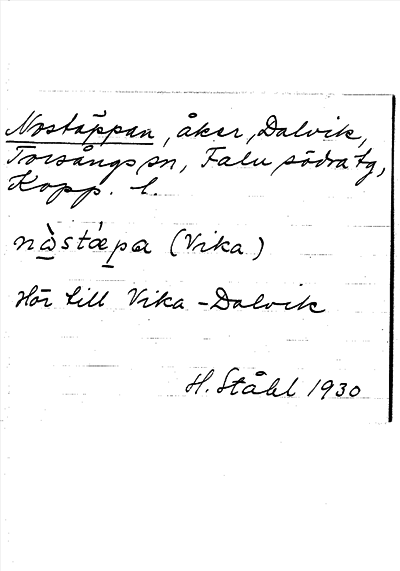 Nostäppan, åker, Dalvik,
Torsångs sn, Falu södra tg,
Kopp. l.
nàstǽpa (Vika)
Hör till Vika-Dalvik
H. Ståhl 1930